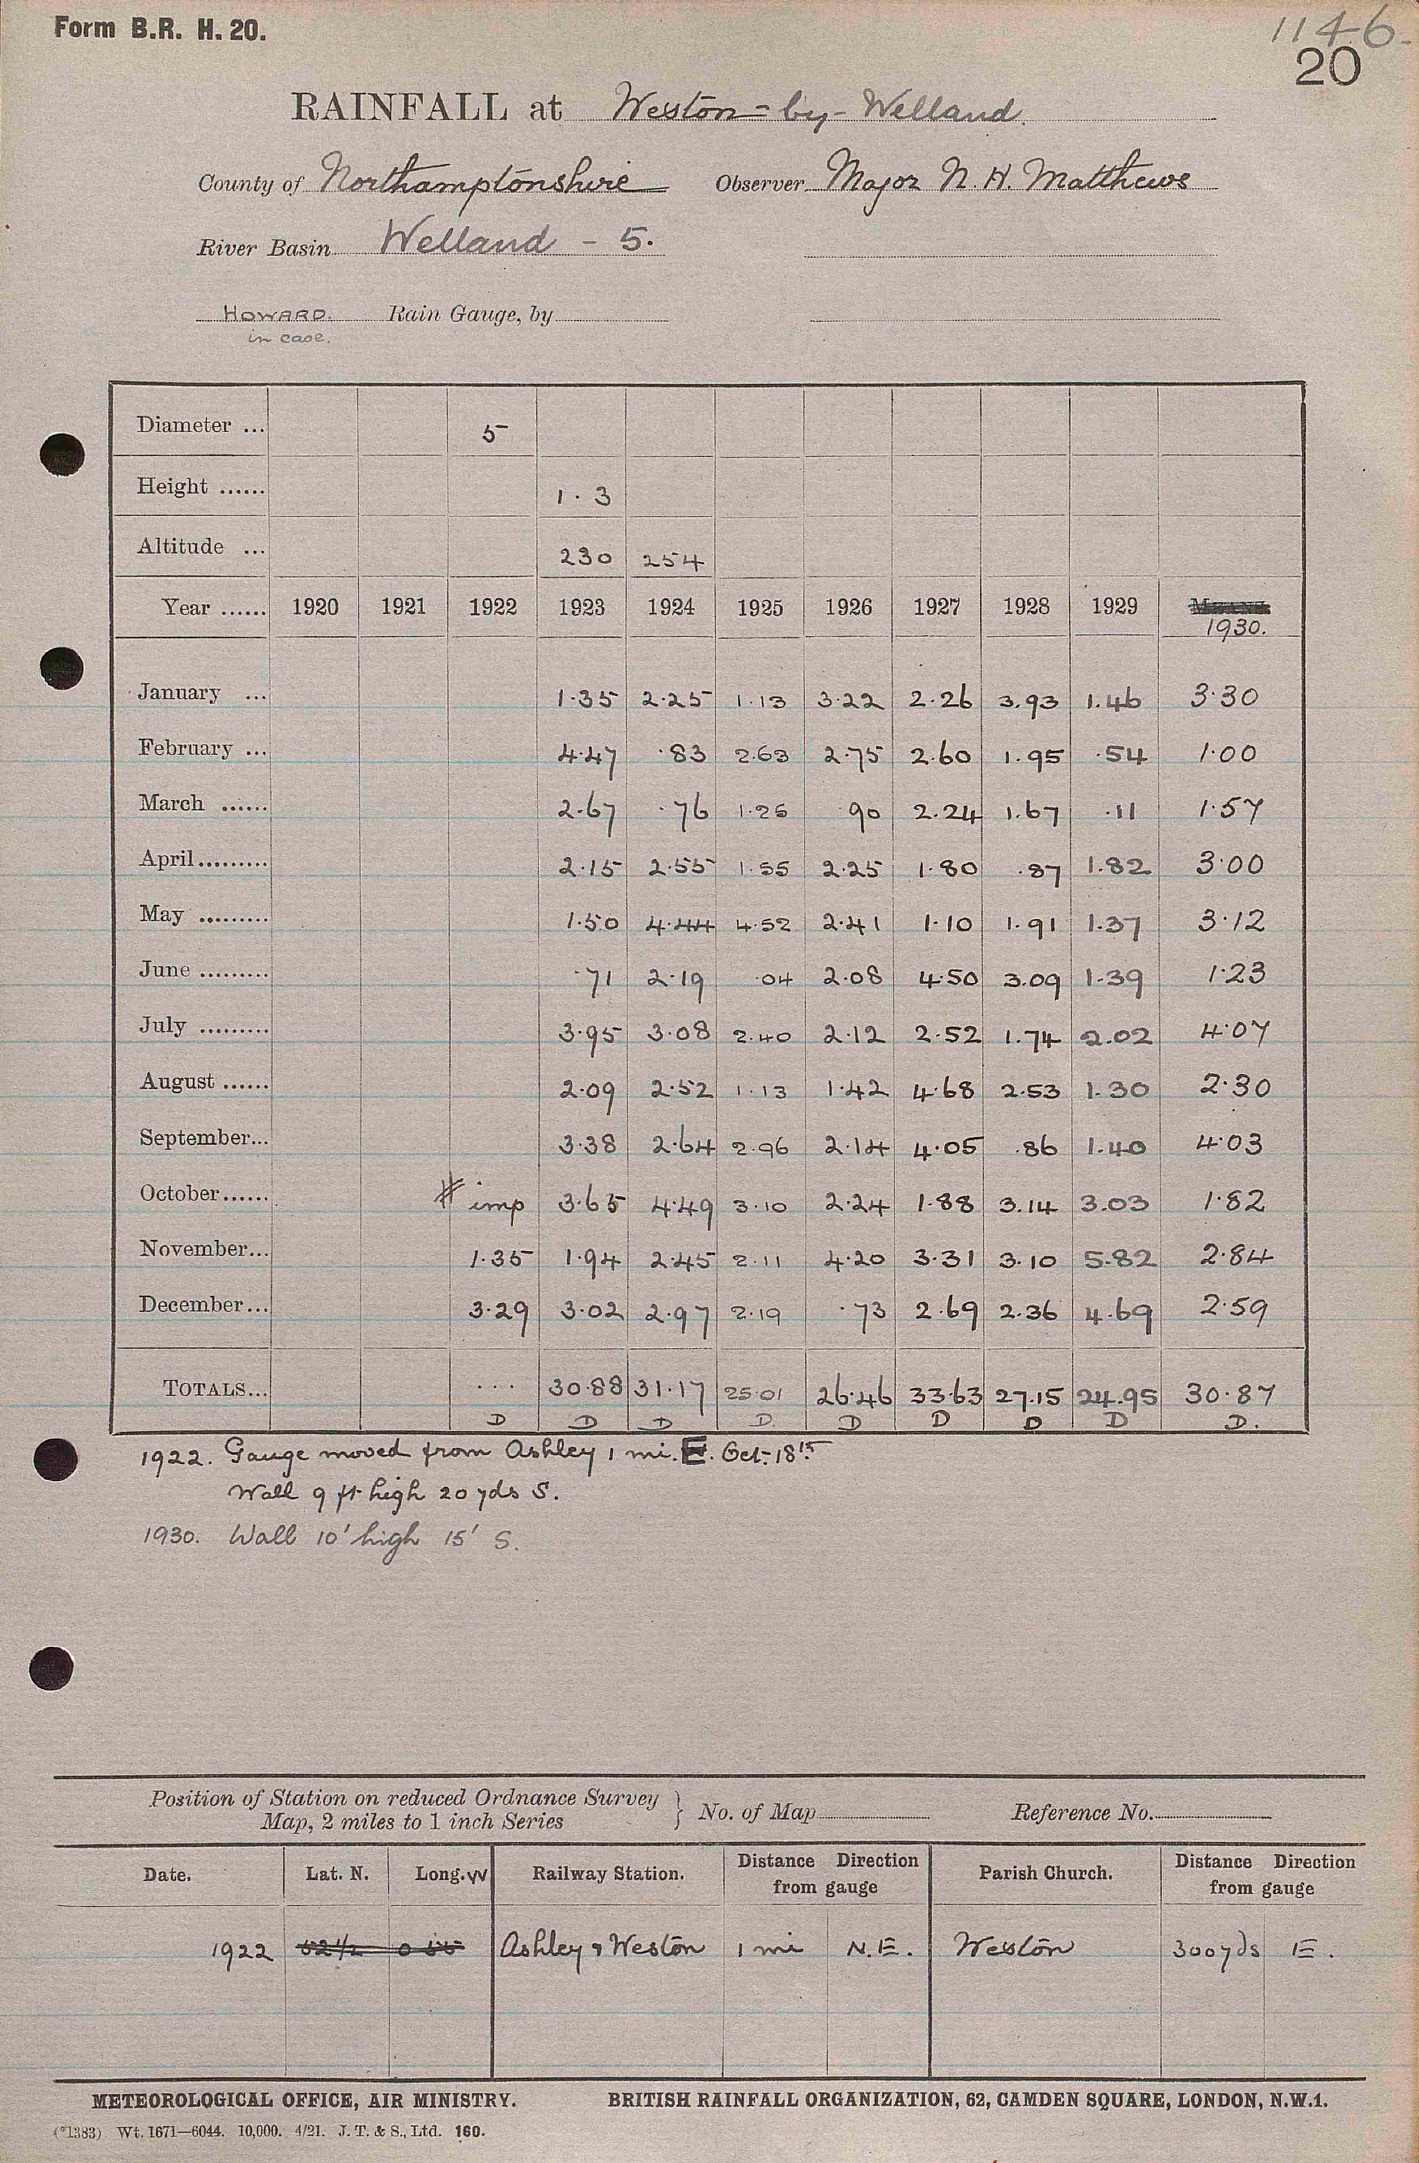 Form B.R. H. 20.
1146.
20
RAINFALL at Weston-by-Welland.
County of Northamptonshire Observer Major N. H. Matthews
River Basin Welland - 5.
HOWARD. Rain Gauge, by
in case.
Diameter ... 5
Height ...... 1·3
Altitude ... 230 254
Year ...... 1920 1921 1922 1923 1924 1925 1926 1927 1928 1929
1930.
January ... 1·35 2·25 1·13 3·22 2·26 3.93 1.46 3·30
February ... 4·47 ·83 2.63 2·75 2.60 1.95 ·54 1·00
March ...... 2·67 ·76 1·25 ·90 2.24 1.67 ·11 1·57
April......... 2·15 2·55 1·55 2·25 1·80 ·87 1.82 3·00
May ......... 1·50 4·44 4·52 2·41 1·10 1·91 1·37 3·12
June ......... ·71 2·19 ·04 2·08 4·50 3.09 1·39 1·23
July ......... 3·95 3·08 2.40 2·12 2·52 1.74 2.02 4·07
August ...... 2·09 2·52 1·13 1·42 4·68 2·53 1·30 2·30
September... 3·38 2·64 2·96 2·14 4·05 ·86 1.40 4·03
October...... # imp 3·65 4·49 3·10 2·24 1·88 3.14 3.03 1·82
November... 1·35 1·94 2·45 2·11 4·20 3·31 3·10 5.82 2·84
December... 3·29 3·02 2·97 2·19 ·73 2·69 2·36 4·69 2·59
TOTALS... ... 30·88 31·17 25·01 26·46 33·63 27.15 24.95 30·87
D D D D. D D D D D.
1922. Gauge moved from Ashley 1 mi. E. Oct. 18th
Wall 9 ft high 20 yds S.
1930. Wall 10' high 15' S.
Position of Station on reduced Ordnance Survey
Map, 2 miles to 1 inch Series } No. of Map Reference No.
Date. Lat. N. Long. W Railway Station. Distance Direction from gauge Parish Church. Distance Direction from gauge
1922 52 1/2 0 55 Ashley & Weston 1 mi N.E. Weston 300 yds E.
METEOROLOGICAL OFFICE, AIR MINISTRY. BRITISH RAINFALL ORGANIZATION, 62, CAMDEN SQUARE, LONDON, N.W.1.
(*1383) Wt. 1671—6044. 10,000. 4/21. J. T. & S., Ltd. 160.